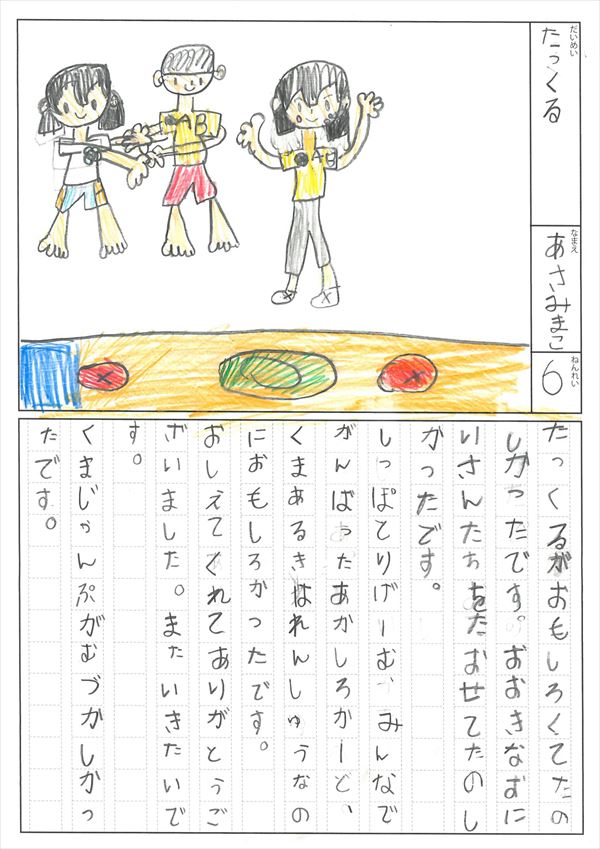 だいめい
たっくる
なまえ
あさみまこ
ねんれい
6
AB
AB
たっくるがおもしろくてたの
しかったです。おおきなおに
いさんたちをたおせてたのし
かったです。
しっぽとりげーむ、みんなで
がんばったあかしろかーど、
くまあるきはれんしゅうなの
におもしろかったです。
おしえてくれてありがとうご
ざいました。またいきたいで
す。
くまじゃんぷがむづかしかっ
たです。